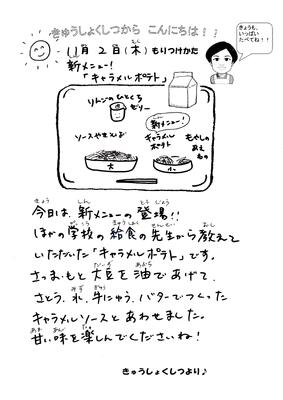 きゅうしょくしつから こんにちは!!
きょうも、
いっぱい
たべてね!!
11月2日(木)もりつけかた
新メニュー!
「キャラメルポテト」
りんごのひとくち
ゼリー
新メニュー!
ソースやきそば
キャラメル
ポテト
もやしの
あえもの
大
小
今日は、新メニューの登場!!
ほかの学校の給食の先生から教えて
いただいた「キャラメルポテト」です。
さつまいもと大豆を油であげて、
さとう、水、牛にゅう、バターでつくった
キャラメルソースとあわせました。
甘い味を楽しんでくださいね!
きゅうしょくしつより♪